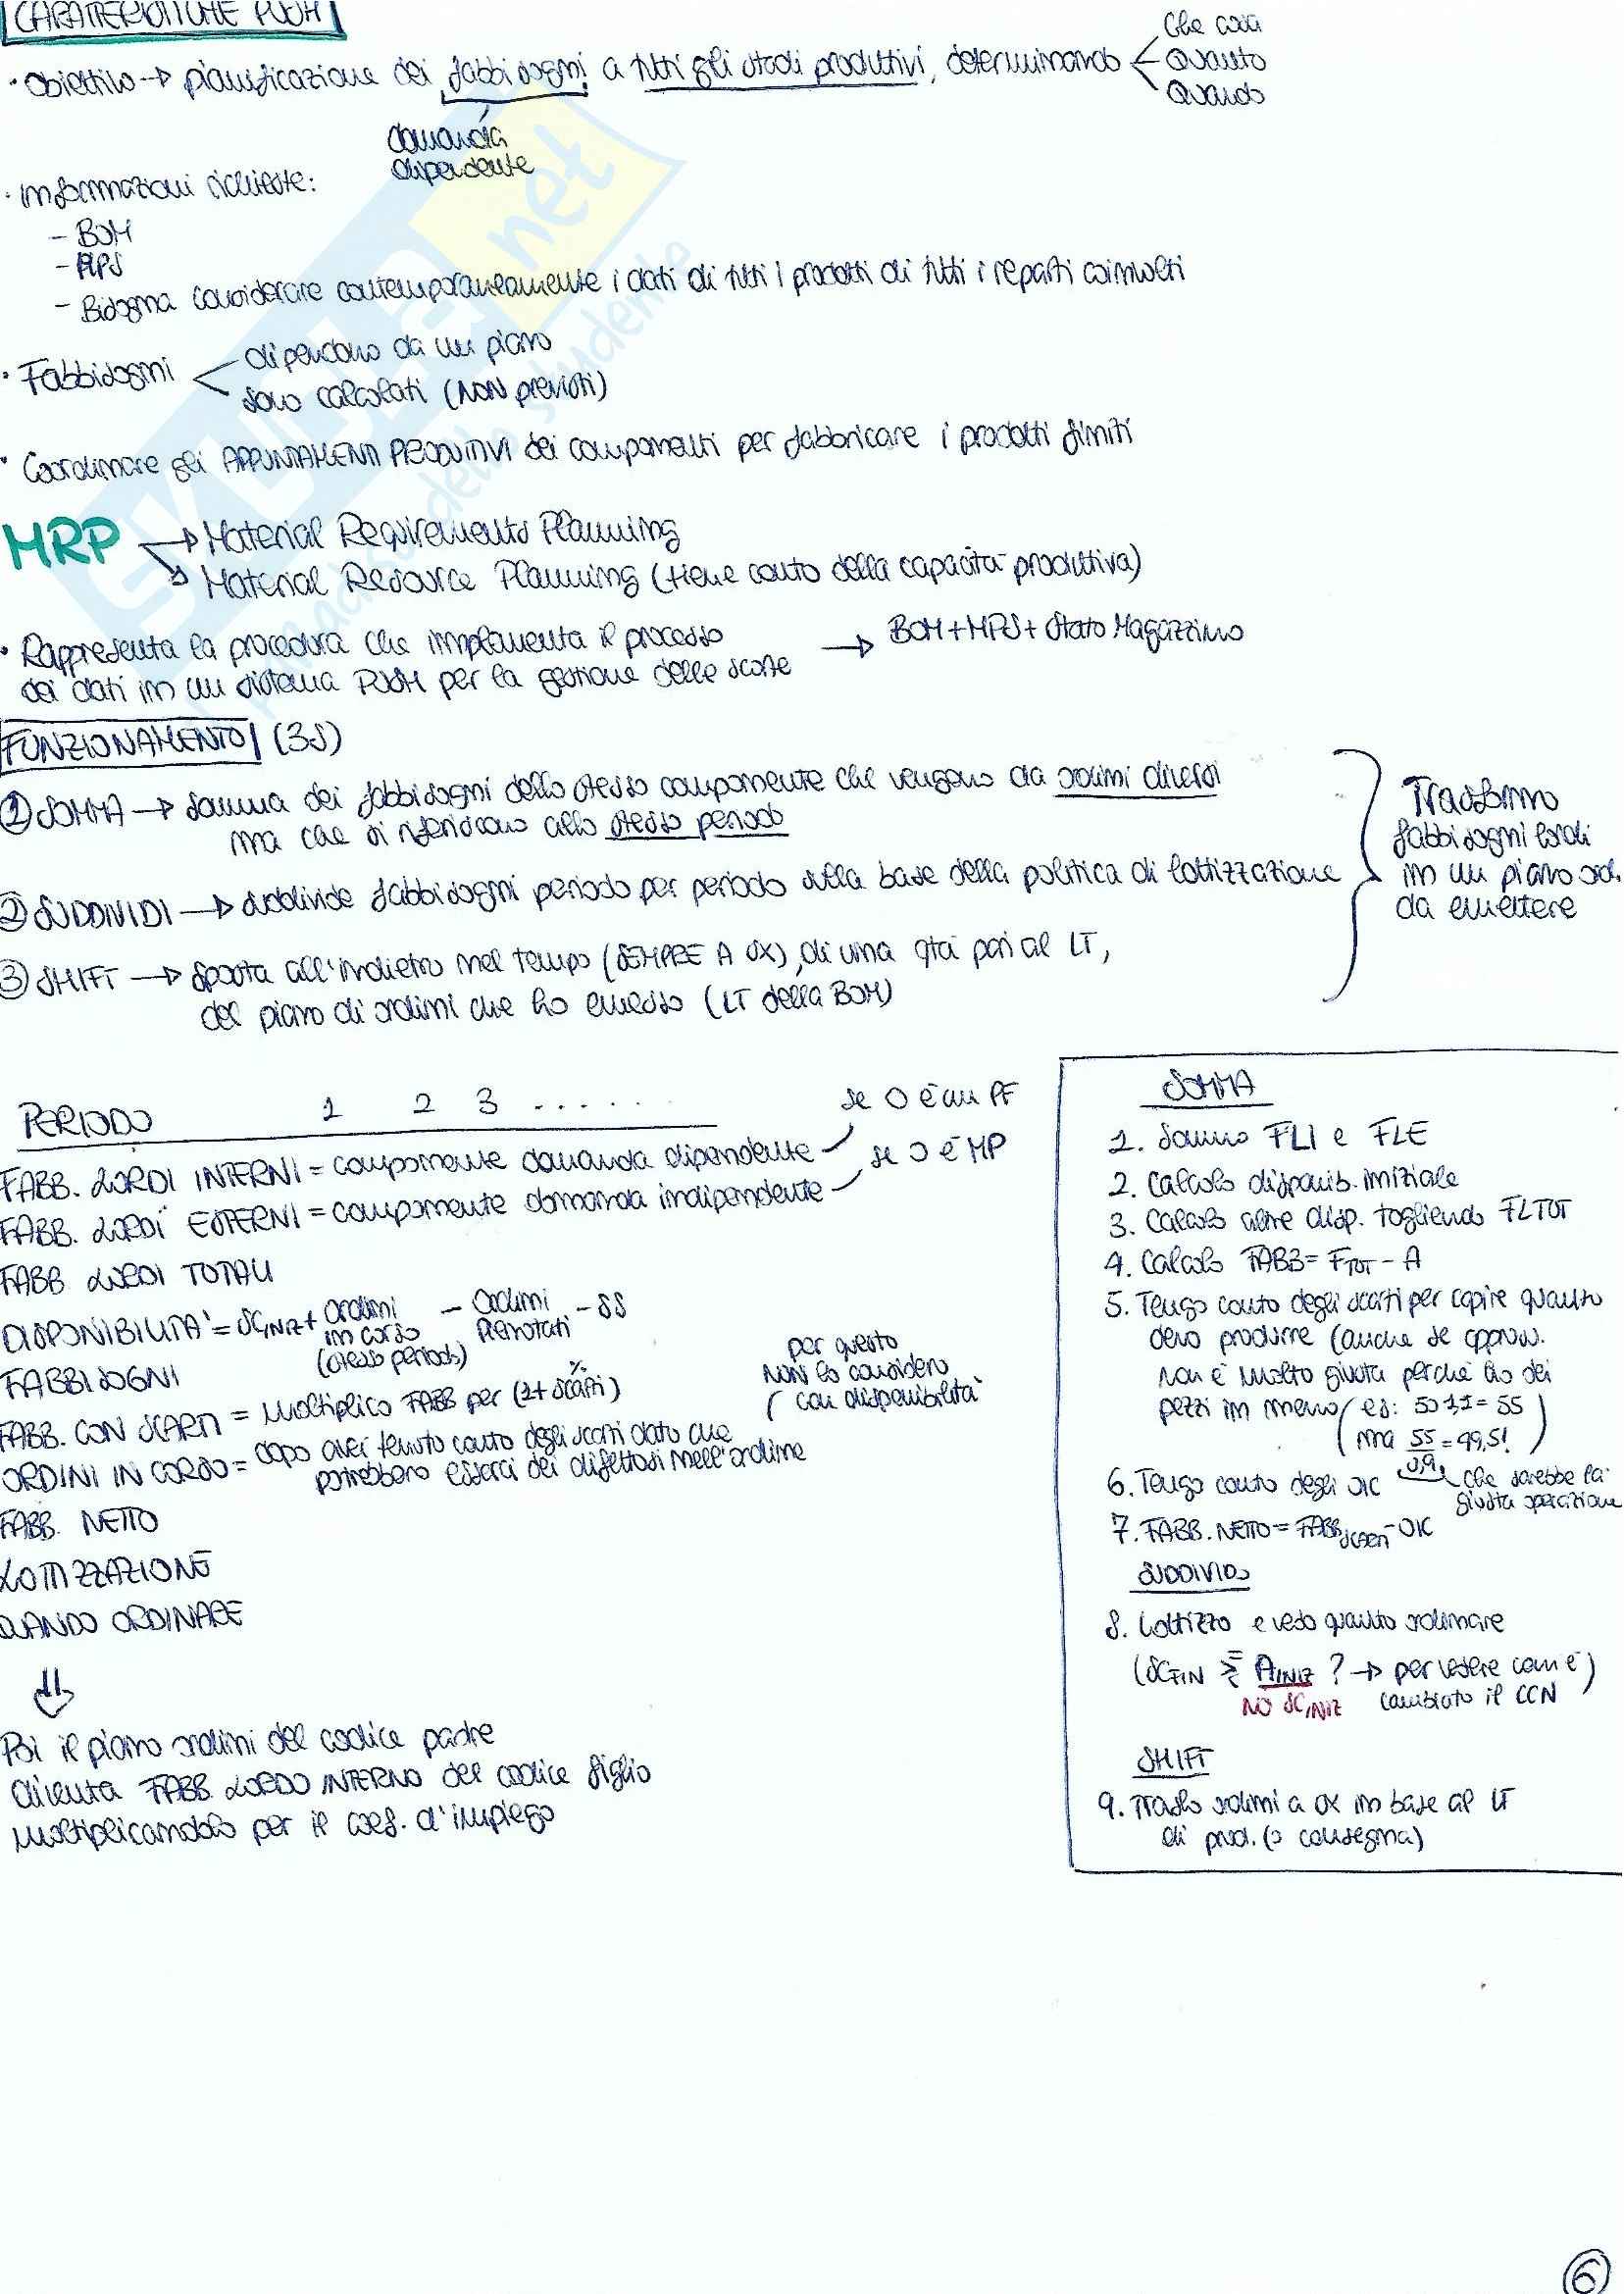 CARATTERISTICHE PUSH
· Obiettivo → pianificazione dei fabbisogni a tutti gli stadi produttivi, determinando
Che cosa
Quanto
Quando
domanda
dipendente
· Informazioni richieste:
- BOM
- MPS
- Bisogna considerare contemporaneamente i dati di tutti i prodotti di tutti i reparti coinvolti
· Fabbisogni
dipendono da un piano
sono calcolati (NON previsti)
· Coordinare gli APPUNTAMENTI PRODUTTIVI dei componenti per fabbricare i prodotti finiti
MRP → Material Requirements Planning
→ Material Resource Planning (tiene conto della capacità produttiva)
· Rappresenta la procedura che implementa il processo
dei dati in un sistema PUSH per la gestione delle scorte
→ BOM+MPS+ Stato Magazzino
FUNZIONAMENTO (3S)
① SOMMA → somma dei fabbisogni dello stesso componente che vengono da ordini diversi
ma che si riferiscono allo stesso periodo
② SUDDIVIDI → suddivide fabbisogni periodo per periodo sulla base della politica di lottizzazione
③ SHIFT → sposta all'indietro nel tempo (SEMPRE A SX), di una qtà pari al LT,
del piano di ordini che ho emesso (LT della BOM)
Trasformo
fabbisogni lordi
in un piano ord.
da emettere
PERIODO 1 2 3 ......
se 0 è un PF
FABB. LORDI INTERNI = componente domanda dipendente
se 0 è MP
FABB. LORDI ESTERNI = componente domanda indipendente
FABB LORDI TOTALI
DISPONIBILITA' = SCINIZ + ordini in corso (stesso periodo) - Ordini Prenotati - SS
FABBISOGNI
FABB. CON SCARTI = Moltiplico FABB per (1+ scarti %)
ORDINI IN CORSO = dopo aver tenuto conto degli scarti dato che
potrebbero esserci dei difettosi nell'ordine
per questo
NON lo considero
con disponibilità
FABB. NETTO
LOTTIZZAZIONE
QUANDO ORDINARE
⇓
Poi il piano ordini del codice padre
diventa FABB. LORDO INTERNO del codice figlio
moltiplicandolo per il coef. d'impiego
SOMMA
1. Sommo FLI e FLE
2. Calcolo disponib. iniziale
3. Calcolo altre disp. togliendo FLTOT
4. Calcolo FABB = FTOT - A
5. Tengo conto degli scarti per capire quanto
devo produrre (anche se appross.
non è molto giusta perché ho dei
pezzi in meno (es: 50·1,1 = 55
ma 55 = 49,5!)
0,9
6. Tengo conto degli OIC
che sarebbe la
giusta operazione
7. FABB. NETTO = FABBSCARTI - OIC
SUDDIVIDO
8. Lottizzo e vedo quanto ordinare
(SCFIN ⋛ AINIZ ? → per vedere com'è)
NO SCINIZ cambiato il CCN
SHIFT
9. Traslo ordini a SX in base al LT
di prod. (o consegna)
6
SKUOLA.net